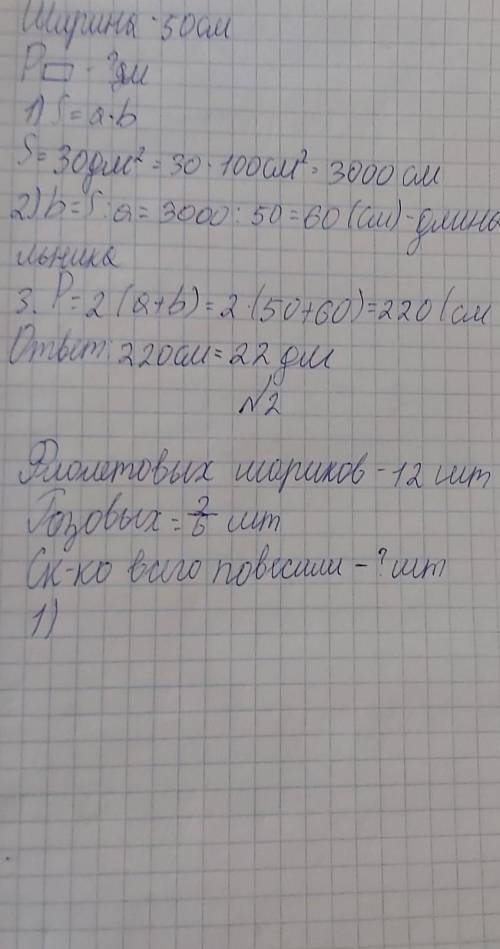 Ширина - 50см
P▭ - ?дм
1) S = a·b
S = 30дм² = 30 · 100см² = 3000 см
2) b = S : a = 3000 : 50 = 60 (см) - длина
льника
3. P = 2 (a+b) = 2 · (50+60) = 220 (см
Ответ: 220см = 22 дм
№2
Фиолетовых шариков - 12 шт
Розовых = 2/6 шт
Ск-ко всего повесили - ? шт
1)